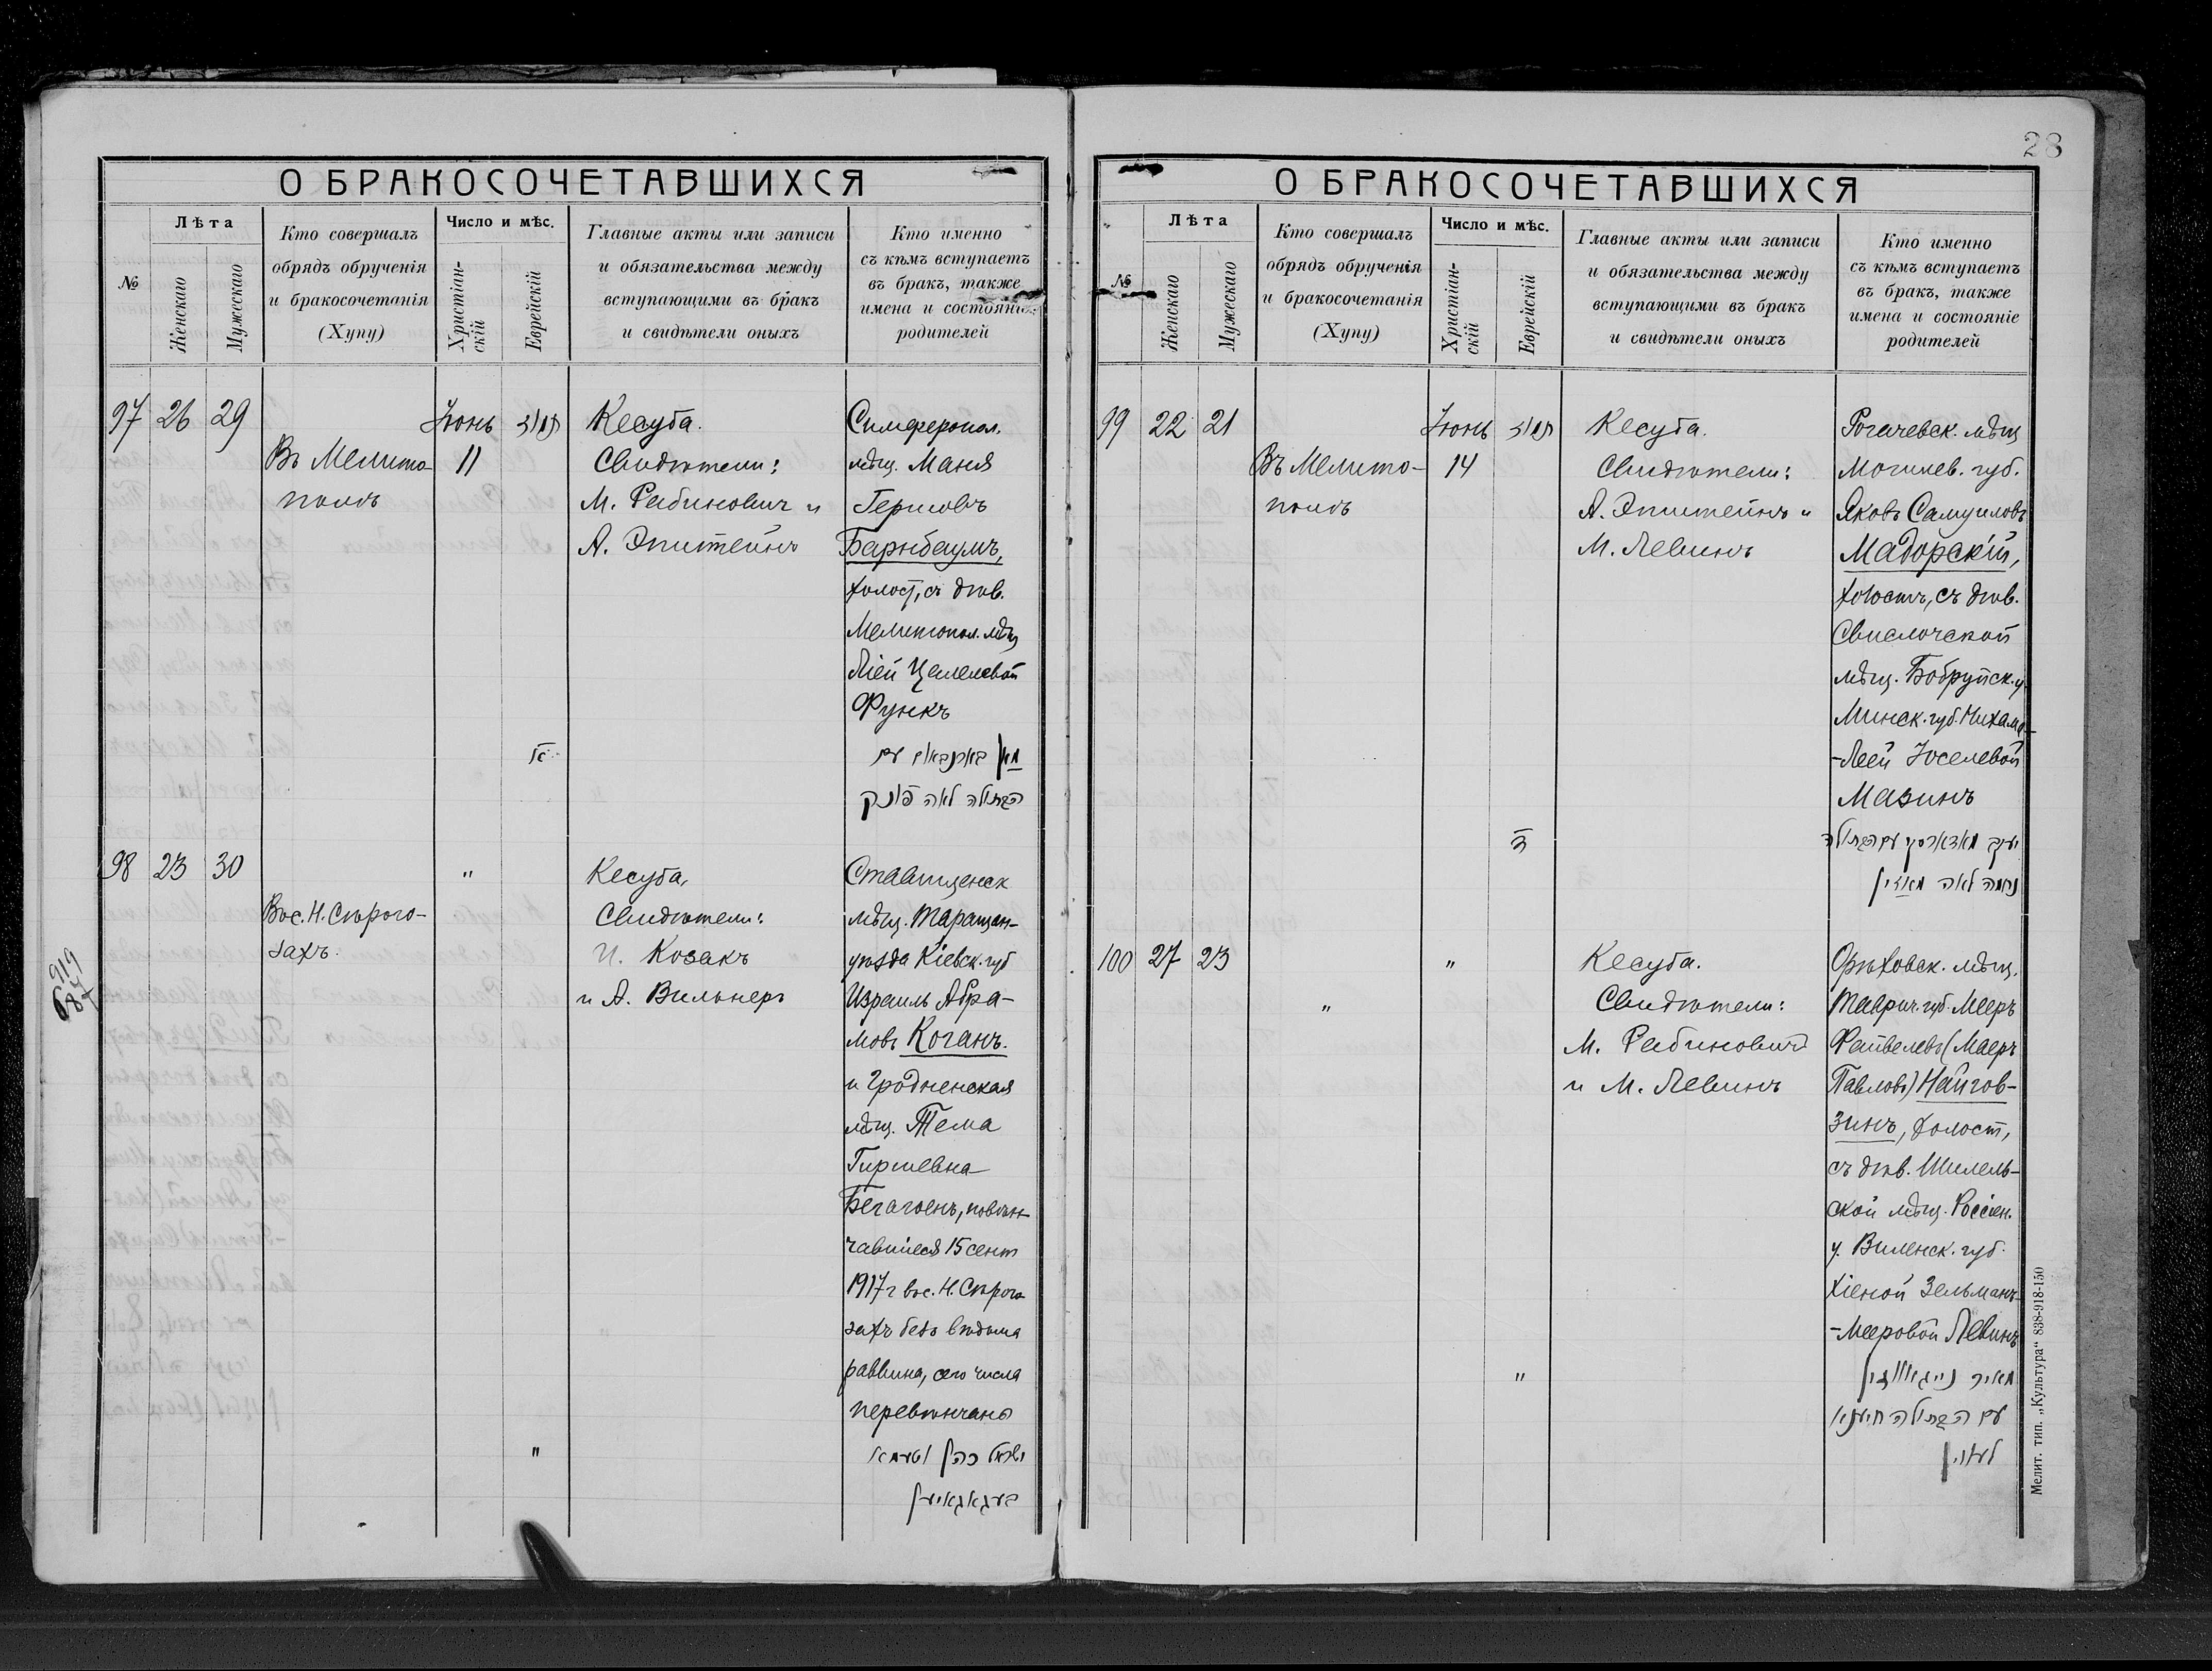 28
О БРАКОСОЧЕТАВШИХСЯ
№
Лѣта
Женскаго
Мужескаго
Кто совершалъ
обрядъ обрученія
и бракосочетанія
(Хупу)
Число и мѣс.
Христіан-
скій
Еврейскій
Главные акты или записи
и обязательства между
вступающими въ бракъ
и свидѣтели оныхъ
Кто именно
съ кѣмъ вступаетъ
въ бракъ, также
имена и состояніе
родителей
97 26 29
Въ Мелито-
полѣ
Іюнь
11
סיון
Кесуба.
Свидѣтели:
М. Рабиновичъ и
А. Эпштейнъ
Симферопол.
мѣщ. Маня
Гершовъ
Барнбаумъ,
холост, съ дѣв.
Мелитопол. мѣщ
Ліей Цемелевой
Функъ
מאן בארנבאום עם
הבתולה לאה פונק
98 23 30
Вс. Н. Сѣрого-
захъ.
"
Кесуба,
Свидѣтели:
И. Козакъ
и А. Вильнеръ
Ставищенск
мѣщ. Таращан-
уѣзда Кіевск. губ
Израиль Абра-
мовъ Коганъ.
и Гродненская
мѣщ. Тема
Гиршевна
Бегагоенъ, повѣн-
чавшіеся 15 сент
1917 г вс. Н. Сѣрого
захъ безъ вѣдома
раввина, сего числа
перевѣнчано
"
ישראל כהן וטעמא
בעגאגאיען
919
687
О БРАКОСОЧЕТАВШИХСЯ
№
Лѣта
Женскаго
Мужескаго
Кто совершалъ
обрядъ обрученія
и бракосочетанія
(Хупу)
Число и мѣс.
Христіан-
скій
Еврейскій
Главные акты или записи
и обязательства между
вступающими въ бракъ
и свидѣтели оныхъ
Кто именно
съ кѣмъ вступаетъ
въ бракъ, также
имена и состояніе
родителей
99 22 21
Въ Мелито-
полѣ
Іюнь
14
סיון
Кесуба.
Свидѣтели:
А. Эпштейнъ и
М. Левинъ
Рогачевск. мѣщ
Могилев. губ.
Яковъ Самуиловъ
Мадорскій,
холостъ, съ дѣв.
Свислочской
мѣщ. Бобруйск. у.
Минск. губ. Нихама-
-Леей Іоселевой
Мазинъ
יעקב מאדארסקי עם הבתולה
נחמה לאה מאזין
100 27 23
"
"
Кесуба.
Свидѣтели:
М. Рабиновичъ
и М. Левинъ
Орѣховск. мѣщ.
Таврич. губ. Мееръ
Файвелевъ (Маеръ
Павловъ) Найгов-
зинъ, холост,
съ дѣв. Шилель-
ской мѣщ. Россіен.
у. Виленск. губ.
Хіеной Зельманъ-
-Мееровой Левинъ
"
מאיר נייגאווזין
עם הבתולה חיענא
לעווין
Мелит. тип. „Культура" 838-918-150